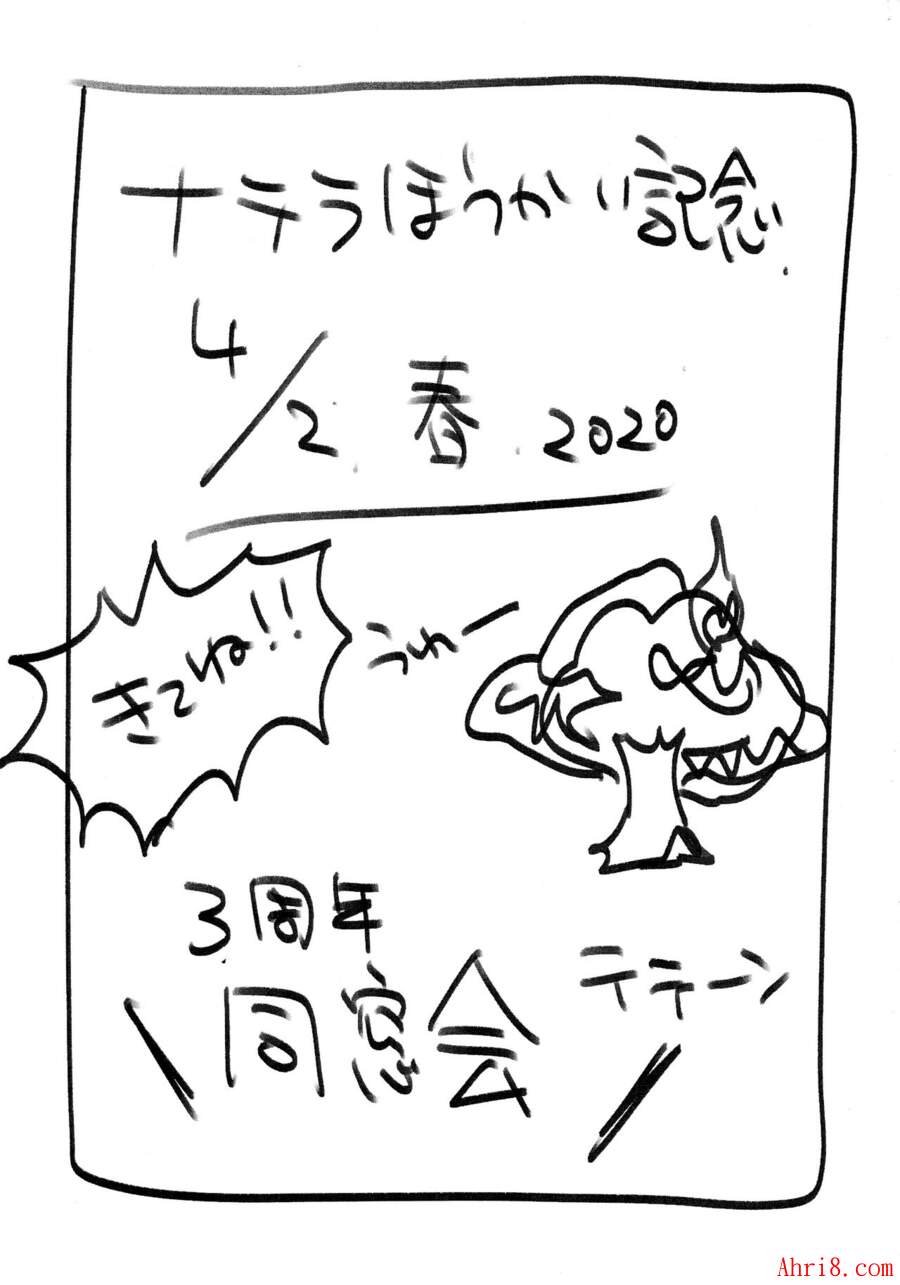 ナテラほうかい記念.
4/2. 春. 2020
きてね!!
うわー
3周年
同窓会
テテーン
Ahri8.com